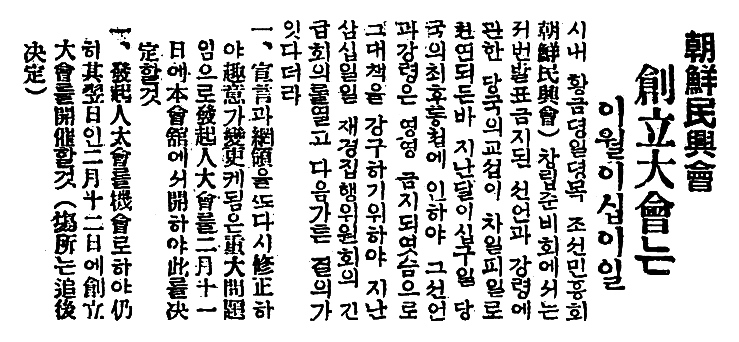 朝鮮民興會
創立大會는
이월이십이일
시내 황금뎡일뎡목 조선민흥회
(朝鮮民興會) 창립준비회에서는
저번발표금지된 선언과 강령에
관한 당국의교섭이 차일피일로
쳔연되든바 지난달이십구일 당
국의최후통텹에 인하야 그선언
과강령은 영영 금지되엿슴으로
그대책을 강구하기위하야 지난
삼십일일 재경집행위원회의 긴
급회의를열고 다음가튼 결의가
잇다더라
一、宣言과綱領을 ᄯᅩ다시 修正하
야趣意가變更케됨은重大問題
임으로發起人大會를二月十一
日에本會舘에서開하야此를決
定할것
一、發起人大會를機會로하야仍
히其翌日인二月十二日에創立
大會를開催할것 (塲所는追後
決定)